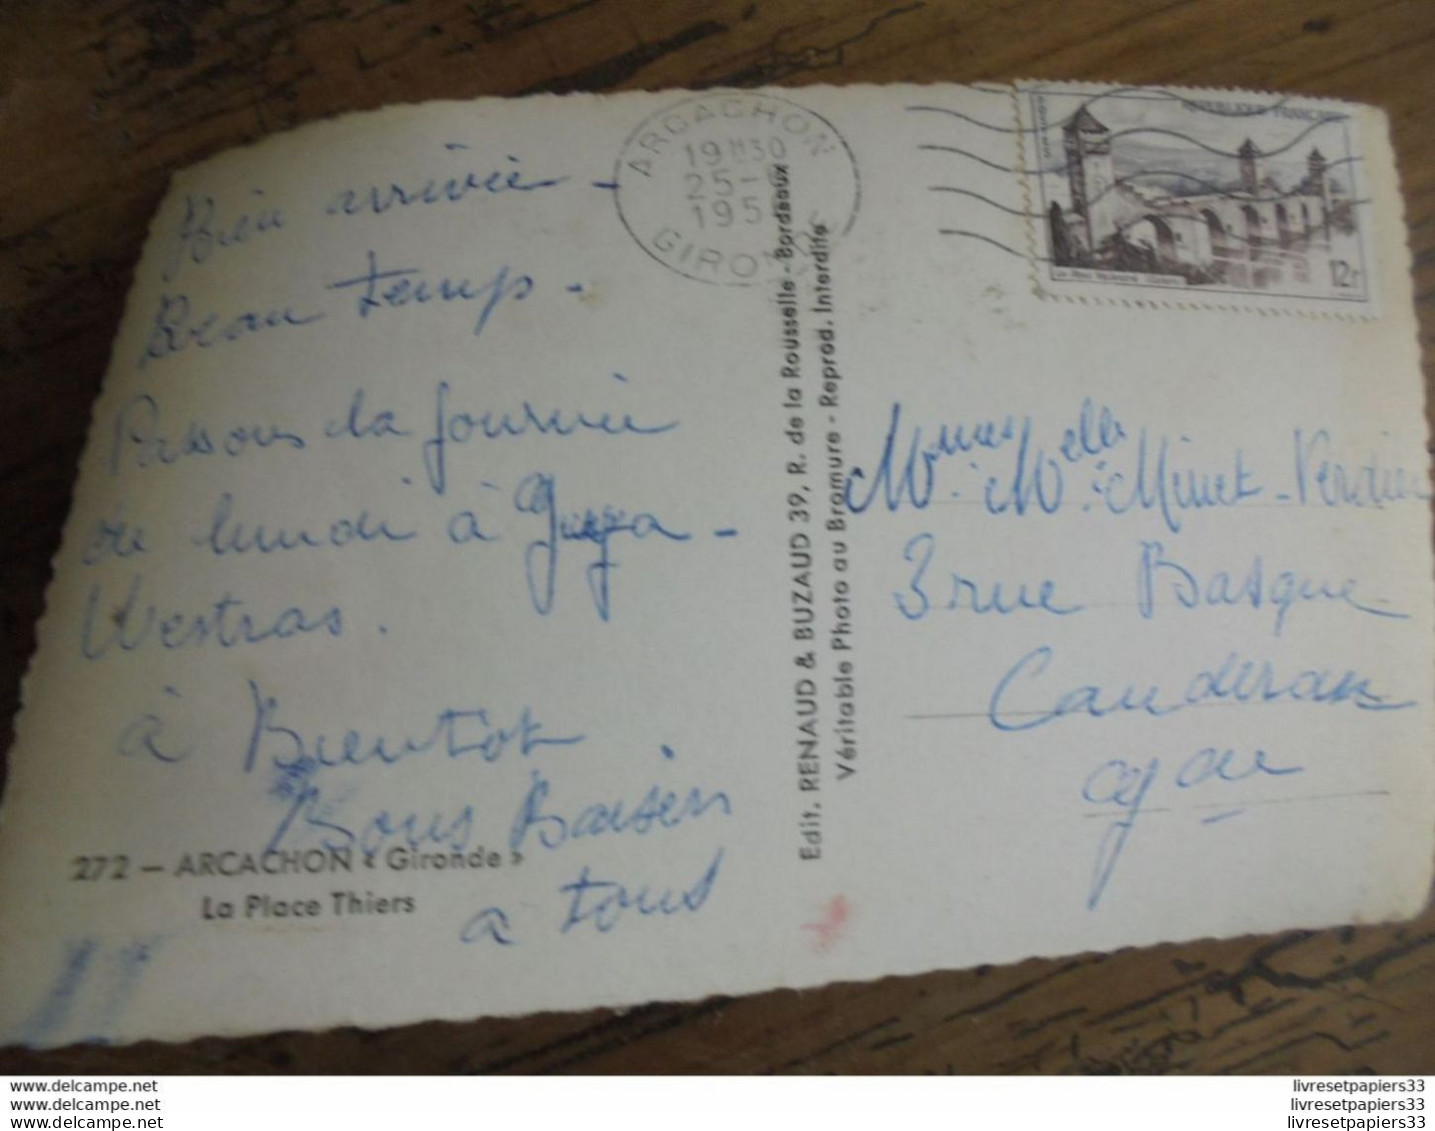 Bien arrivée -
Beau temp -
Passons la journée
de lundi à
Westras.
à Bientot
Bons Baisers
a tous
272 - ARCACHON « Gironde »
La Place Thiers
ARCACHON
19H30
25-
195
GIRONDE
Edit. RENAUD & BUZAUD 39, R. de la Rousselle - Bordeaux
Véritable Photo au Bromure - Reprod. Interdite
REPUBLIQUE FRANÇAISE
12F
Mmes Melle Minet-Verdier
3 rue Basque
Cauderan
www.delcampe.net
www.delcampe.net
www.delcampe.net
livresetpapiers33
livresetpapiers33
livresetpapiers33